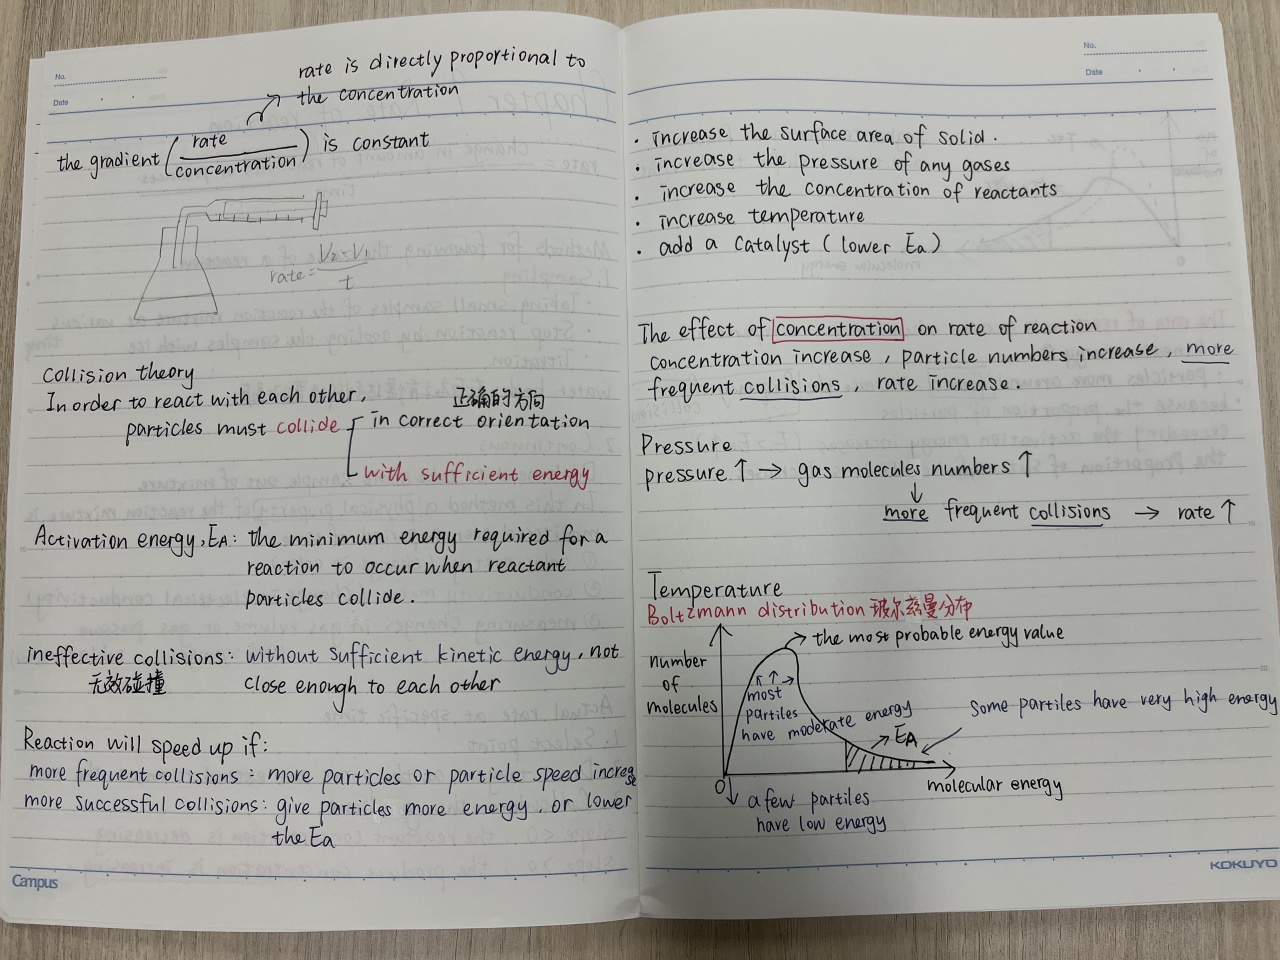 No.
Date
rate is directly proportional to
the concentration
the gradient ( rate / concentration ) is constant
rate = V₂-V₁ / t
Collision theory
In order to react with each other,
正确的方向
particles must collide in correct orientation
with sufficient energy
Activation energy, EA: the minimum energy required for a
reaction to occur when reactant
particles collide.
ineffective collisions: without sufficient kinetic energy, not
无效碰撞 close enough to each other
Reaction will speed up if:
more frequent collisions: more particles or particle speed increase
more successful collisions: give particles more energy, or lower
the Ea
Campus
No.
Date
· increase the surface area of solid.
· increase the pressure of any gases
· increase the concentration of reactants
· increase temperature
· add a catalyst (lower Ea)
The effect of concentration on rate of reaction
concentration increase, particle numbers increase, more
frequent collisions, rate increase.
Pressure
pressure ↑ → gas molecules numbers ↑
↓
more frequent collisions → rate ↑
Temperature
Boltzmann distribution 玻尔兹曼分布
the most probable energy value
number
of
molecules
most
partiles
have moderate energy
Some partiles have very high energy
EA
molecular energy
0
a few partiles
have low energy
KOKUYO